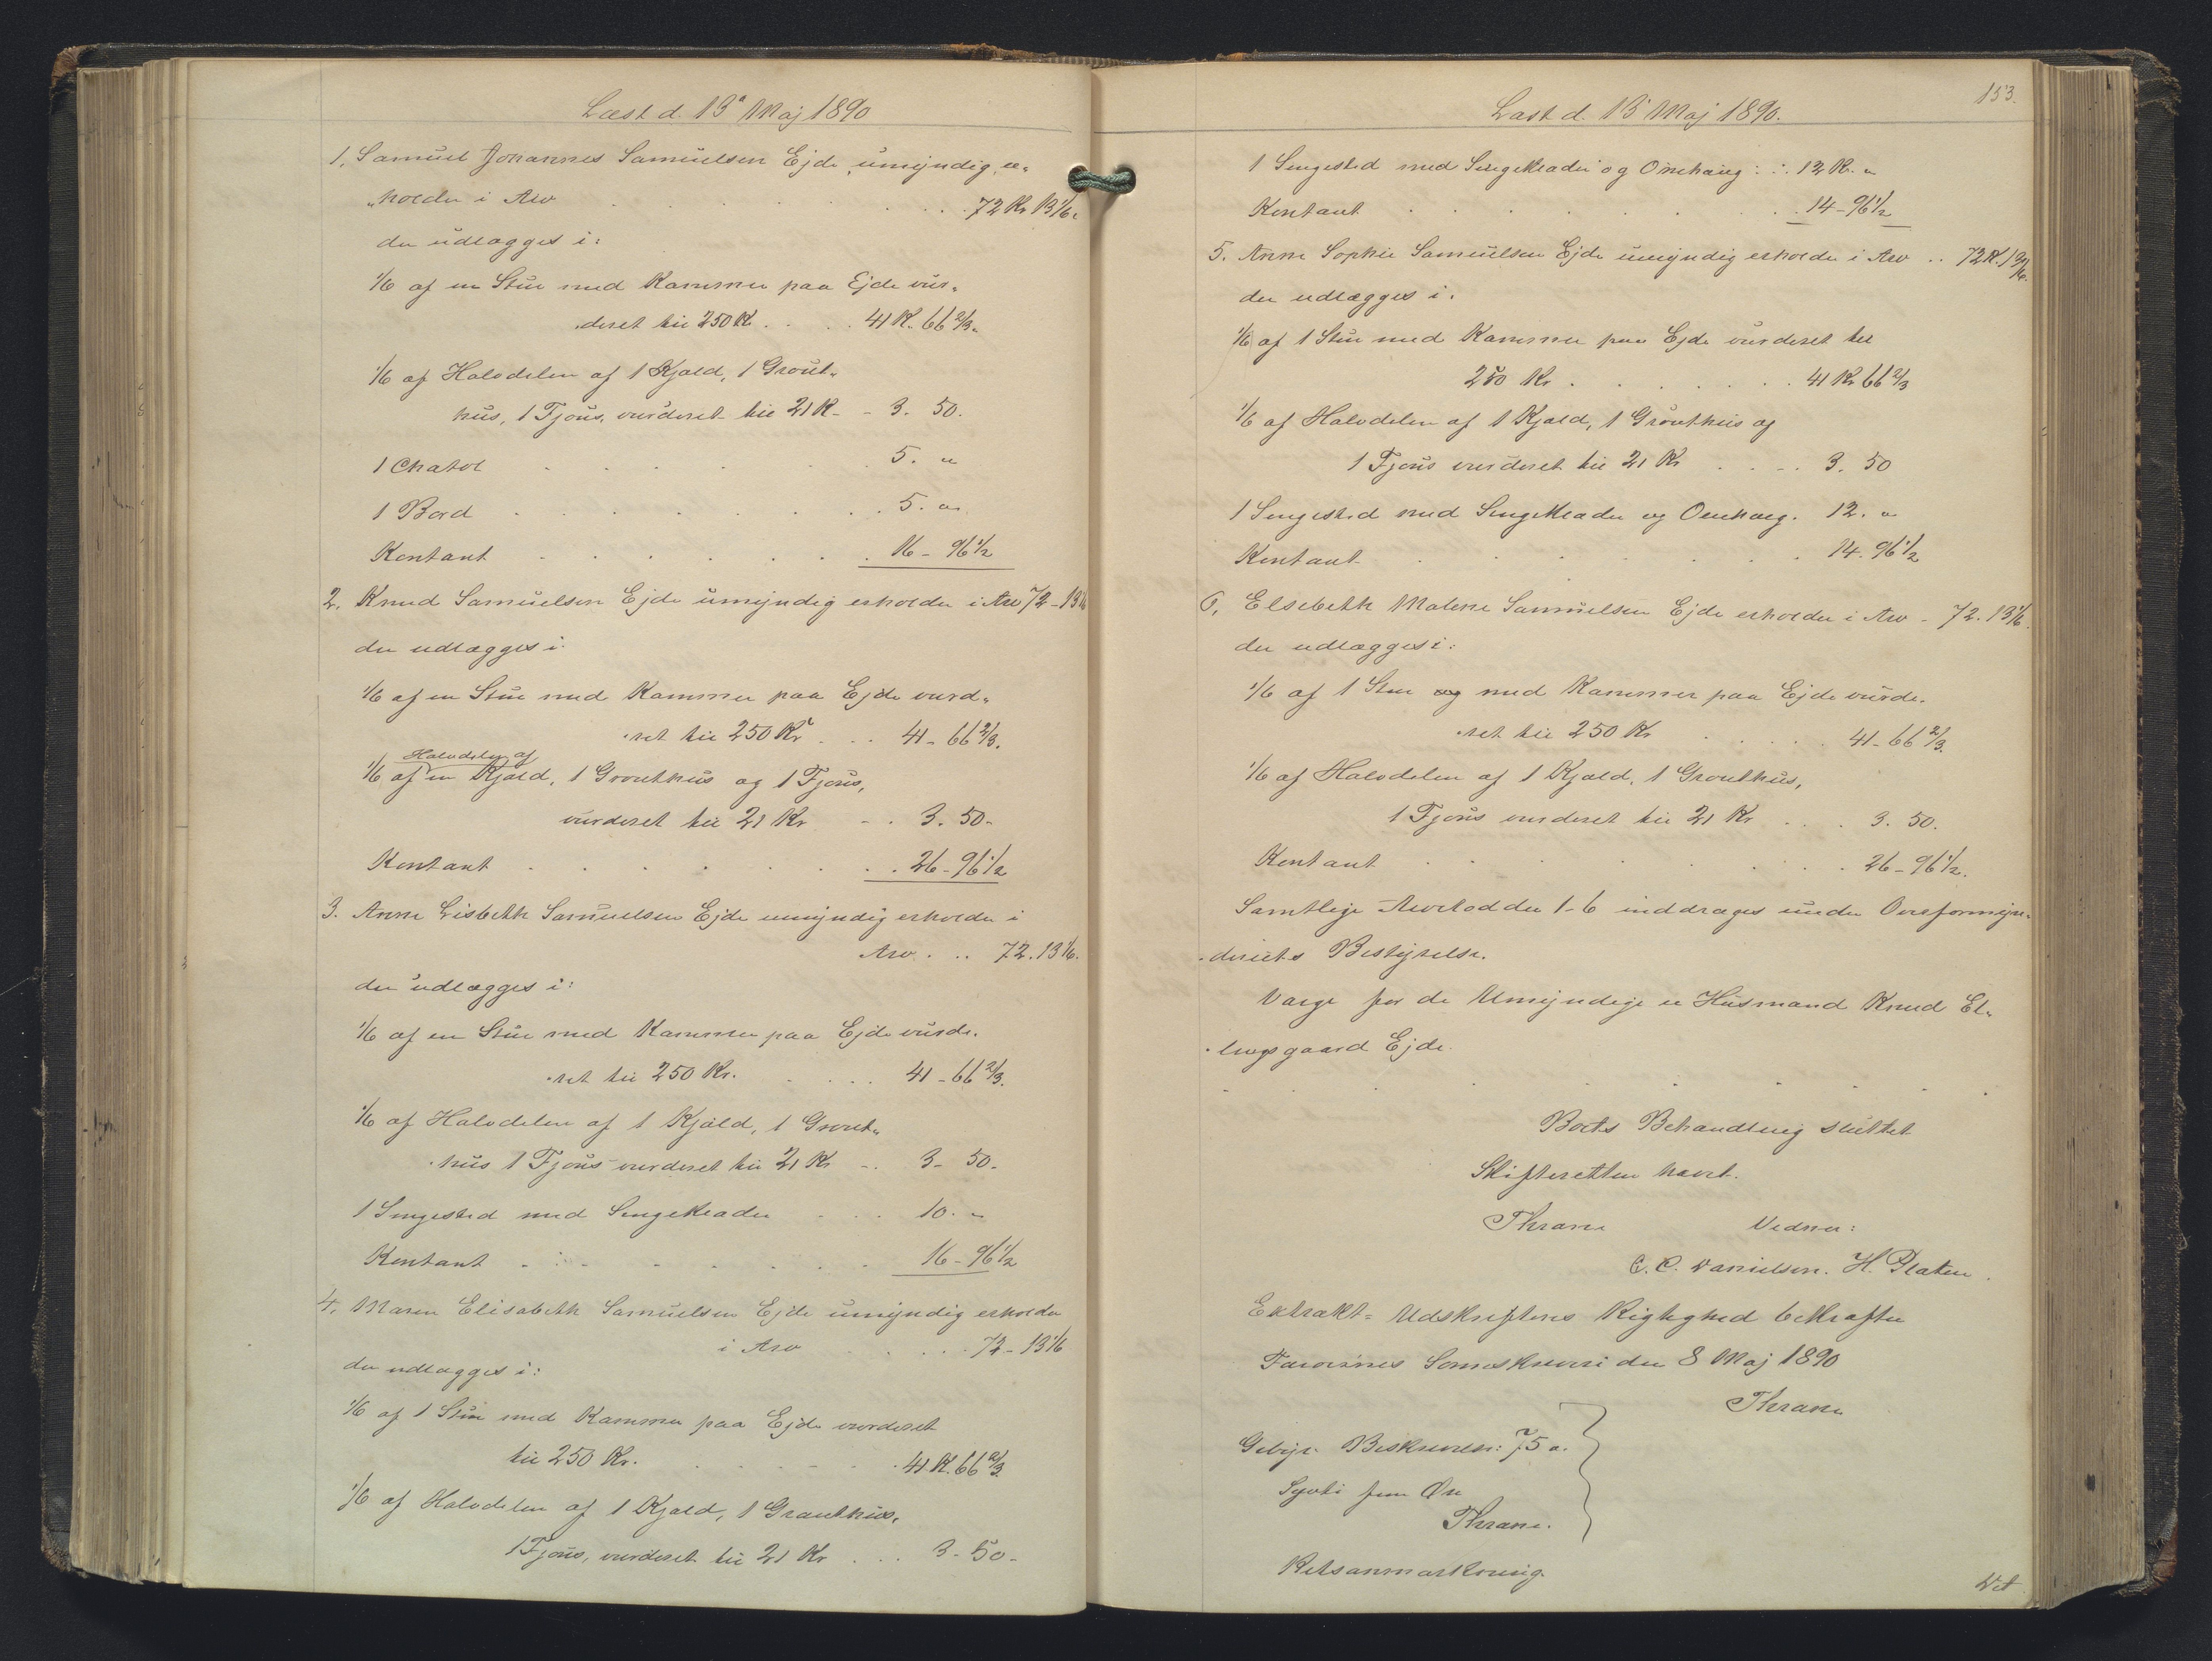 Læst d. 13 Maj 1890
1. Samuel Johannes Samuelsen Ejde, umyndig, er-
"holder i Arv . . . 72 Kr 13 1/6.
der udlægges i:
1/6 af en Stue med Kammer paa Ejde vur-
"deret til 250 K . . . 41 K. 66 2/3.
1/6 af Halvdelen af 1 Kjald, 1 Grout-
hus, 1 Fjøus, vurderet til 21 K - - 3. 50.
1 Chatol . . . 5. "
1 Bord . . . 5. "
Kontant . . . 16 - 96 1/2
2. Knud Samuelsen Ejde umyndig erholder i Arv 72 - 13 1/6
der udlægges i:
1/6 af en Stue med Kammer paa Ejde vurd-
"ret til 250 Kr . . . 41 - 66 2/3.
Halvdelen af
1/6 af en Kjald, 1 Grouthus og 1 Fjøus,
vurderet til 21 Kr - . 3. 50-
Kontant . . . 26 - 96 1/2
3. Anne Lisbeth Samuelsen Ejde umyndig erholder i
Arv . . . 72. 13 1/6.
der udlægges i:
1/6 af en Stue med Kammer paa Ejde vurde-
"ret til 250 Kr. . . . 41 - 66 2/3.
1/6 af Halvdelen af 1 Kjald, 1 Grout-
"hus 1 Fjøus vurderet til 21 Kr - . 3 - 50.
1 Sengested med Sengeklæder . . . 10. "
Kontant . . . 16 - 96 1/2
4. Maren Elisabeth Samuelsen Ejde umyndig erholder
i Arv . . . 72 - 13 1/6
der udlægges i:
1/6 af 1 Stue med Kammer paa Ejde vurderet
til 250 Kr. . . . 41 K. 66 2/3
1/6 af Halvdelen af 1 Kjald, 1 Grauthus,
1 Fjøus, vurderet til 21 Kr . . . 3 - 50 -
153.
Læst d. 13 Maj 1890.
1 Sengested med Sengeklæder og Omhæng : . 12 K. "
Kontant . . . 14 - 96 1/2
5. Anne Sophie Samuelsen Ejde umyndig erholder i Arv . . 72 K. 13 1/6.
der udlægges i:
1/6 af 1 Stue med Kammer paa Ejde vurderet til
250 Kr . . . 41 Kr 66 2/3
1/6 af Halvdelen af 1 Kjald, 1 Grouthus og
1 Fjøus vurderet til 21 Kr . . . 3. 50
1 Sengested med Sengeklæder og Omhæng. 12. "
Kontant . . . 14. 96 1/2
6. Elsebeth Malene Samuelsen Ejde erholder i Arv - 72. 13 1/6.
der udlægges i:
1/6 af 1 Stue og med Kammer paa Ejde vurde-
"ret til 250 Kr . . . 41 - 66 2/3.
1/6 af Halvdelen af 1 Kjald, 1 Grouthus,
1 Fjøus vurderet til 21 Kr . . . 3. 50.
Kontant . . . 26 - 96 1/2.
Samtlige Arvelodder 1-6 inddrages under Overformyn-
"deriets Bestyrelse.
Værge for de Umyndige er Husmand Knud El-
"lingsgaard Ejde.
Boets Behandling sluttet
Skifteretten hævet.
Thrane Vidner:
C. C. Danielsen. H. Platen.
Extrakt-Udskriftens Rigtighed bekræfter
Færøernes Sorenskriveri den 8 Maj 1890
Thrane
Gebyr Beskrivelse: 75 ø.
Syvti fem Øre
Thrane.
Retsanmærkning.
Det